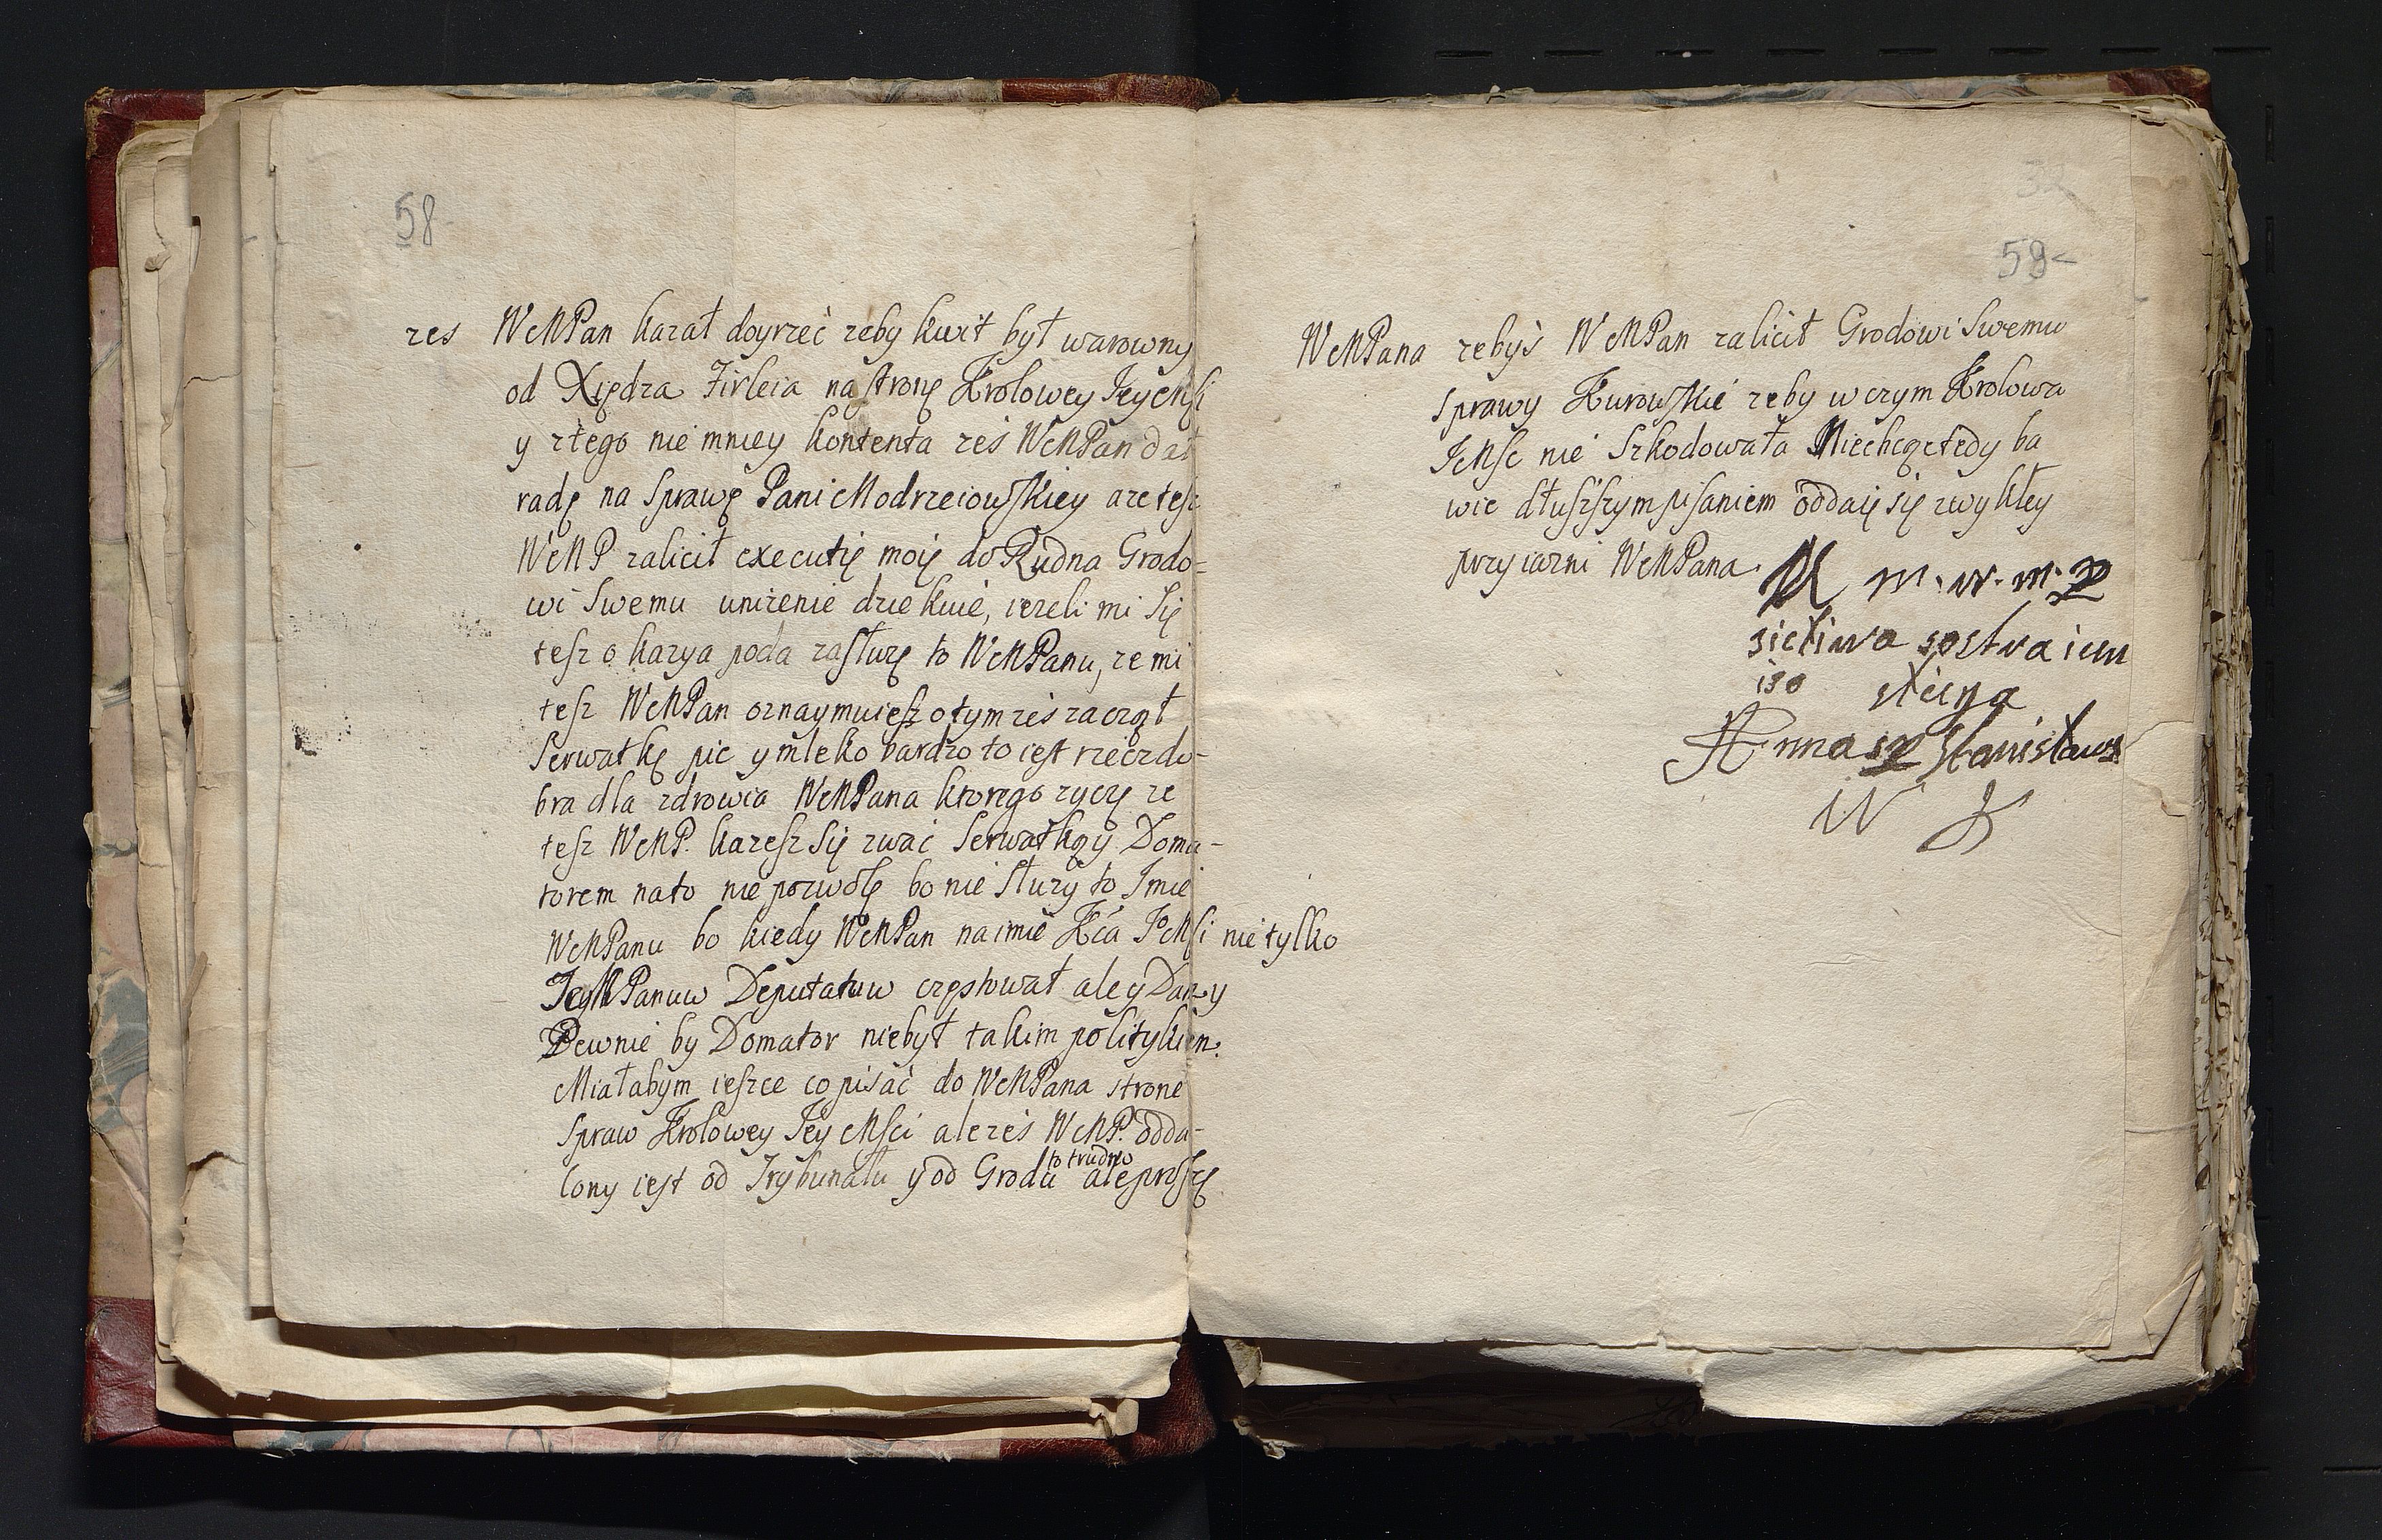 58
zes WeMPan kazał doyrzeć zeby kwit był warowny
od Xiędza Firleia na stronę Krolowey Jey Mści
y z tego nie mniey kontenta zes WeMPan dał
radę na Sprawę Pani Modrzeiowskiey aze tesz
WeMP zalicił executię moię do Rudna Grodo-
wi Swemu unizenie dziekuie, iezeli mi Się
tesz okazya poda zasłuzę to WeMPanu, ze mi
tesz WeMPan oznaymuiesz o tym zes zacząt
Serwatkę pic y mleko bardzo to iest rzecz do-
bra dla zdrowia WeMPana ktorego zyczę ze
tesz WeMP. kazesz Się zwać Serwatką y Doma-
torem na to nie pozwolę bo nie Słuzy to Imie
WeMPanu bo kiedy WeMPan na imie Kća JeMści nie tylko
Ich Panuw Deputatuw częstował ale y Damy
Pewnie by Domator nie był takim politykiem.
Miałabym ieszce co pisać do WeMPana strone
Spraw Krolowey Jey Mści ale zes WeMP. odda-
lony iest od Trybunału y od Grodu to trudno ale proszę
59
WeMPana zebys WeMPan zalicił Grodowi Swemu
Sprawy Kurowskie zeby w czym Krolowa
JeMsc nie Szkodowała Niechcąc tedy ba
wic dłuszszym pisaniem oddaię się zwykłey
przyiazni WeMPana.
M m. w. m. P
siostra
sługa
Anna Stanisławs
W